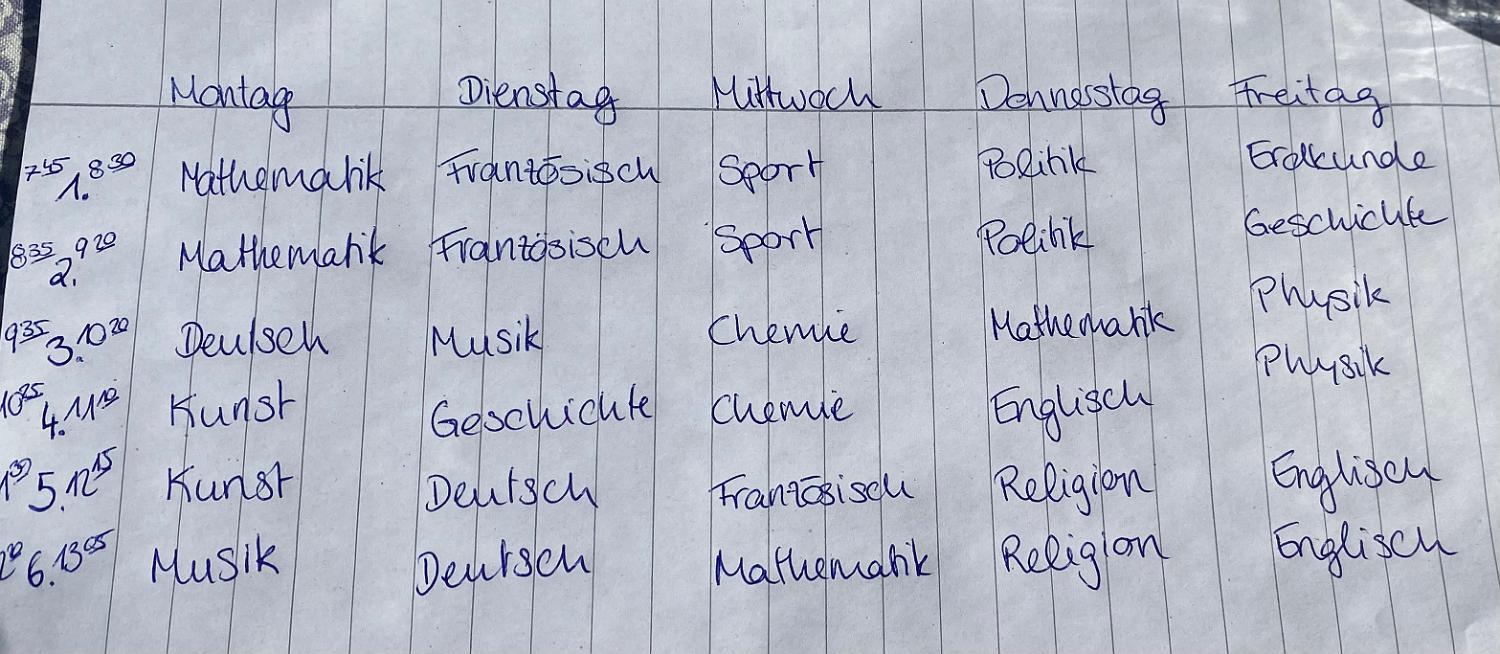 Montag Dienstag Mittwoch Donnesstag Freitag
7⁴⁵ 1. 8³⁰ Mathematik Französisch Sport Politik Erdkunde
8³⁵ 2. 9²⁰ Mathematik Französisch Sport Politik Geschichte
9³⁵ 3. 10²⁰ Deutsch Musik Chemie Mathematik Physik
10²⁵ 4. 11¹⁰ Kunst Geschichte Chemie Englisch Physik
5. 12¹⁵ Kunst Deutsch Französisch Religion Englisch
6. 13⁰⁵ Musik Deutsch Mathematik Religion Englisch